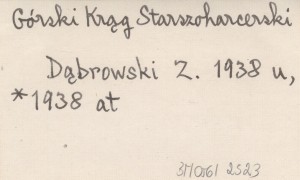 Górski Krąg Starszoharcerski
Dąbrowski Z. 1938 u,
*1938 at
2523